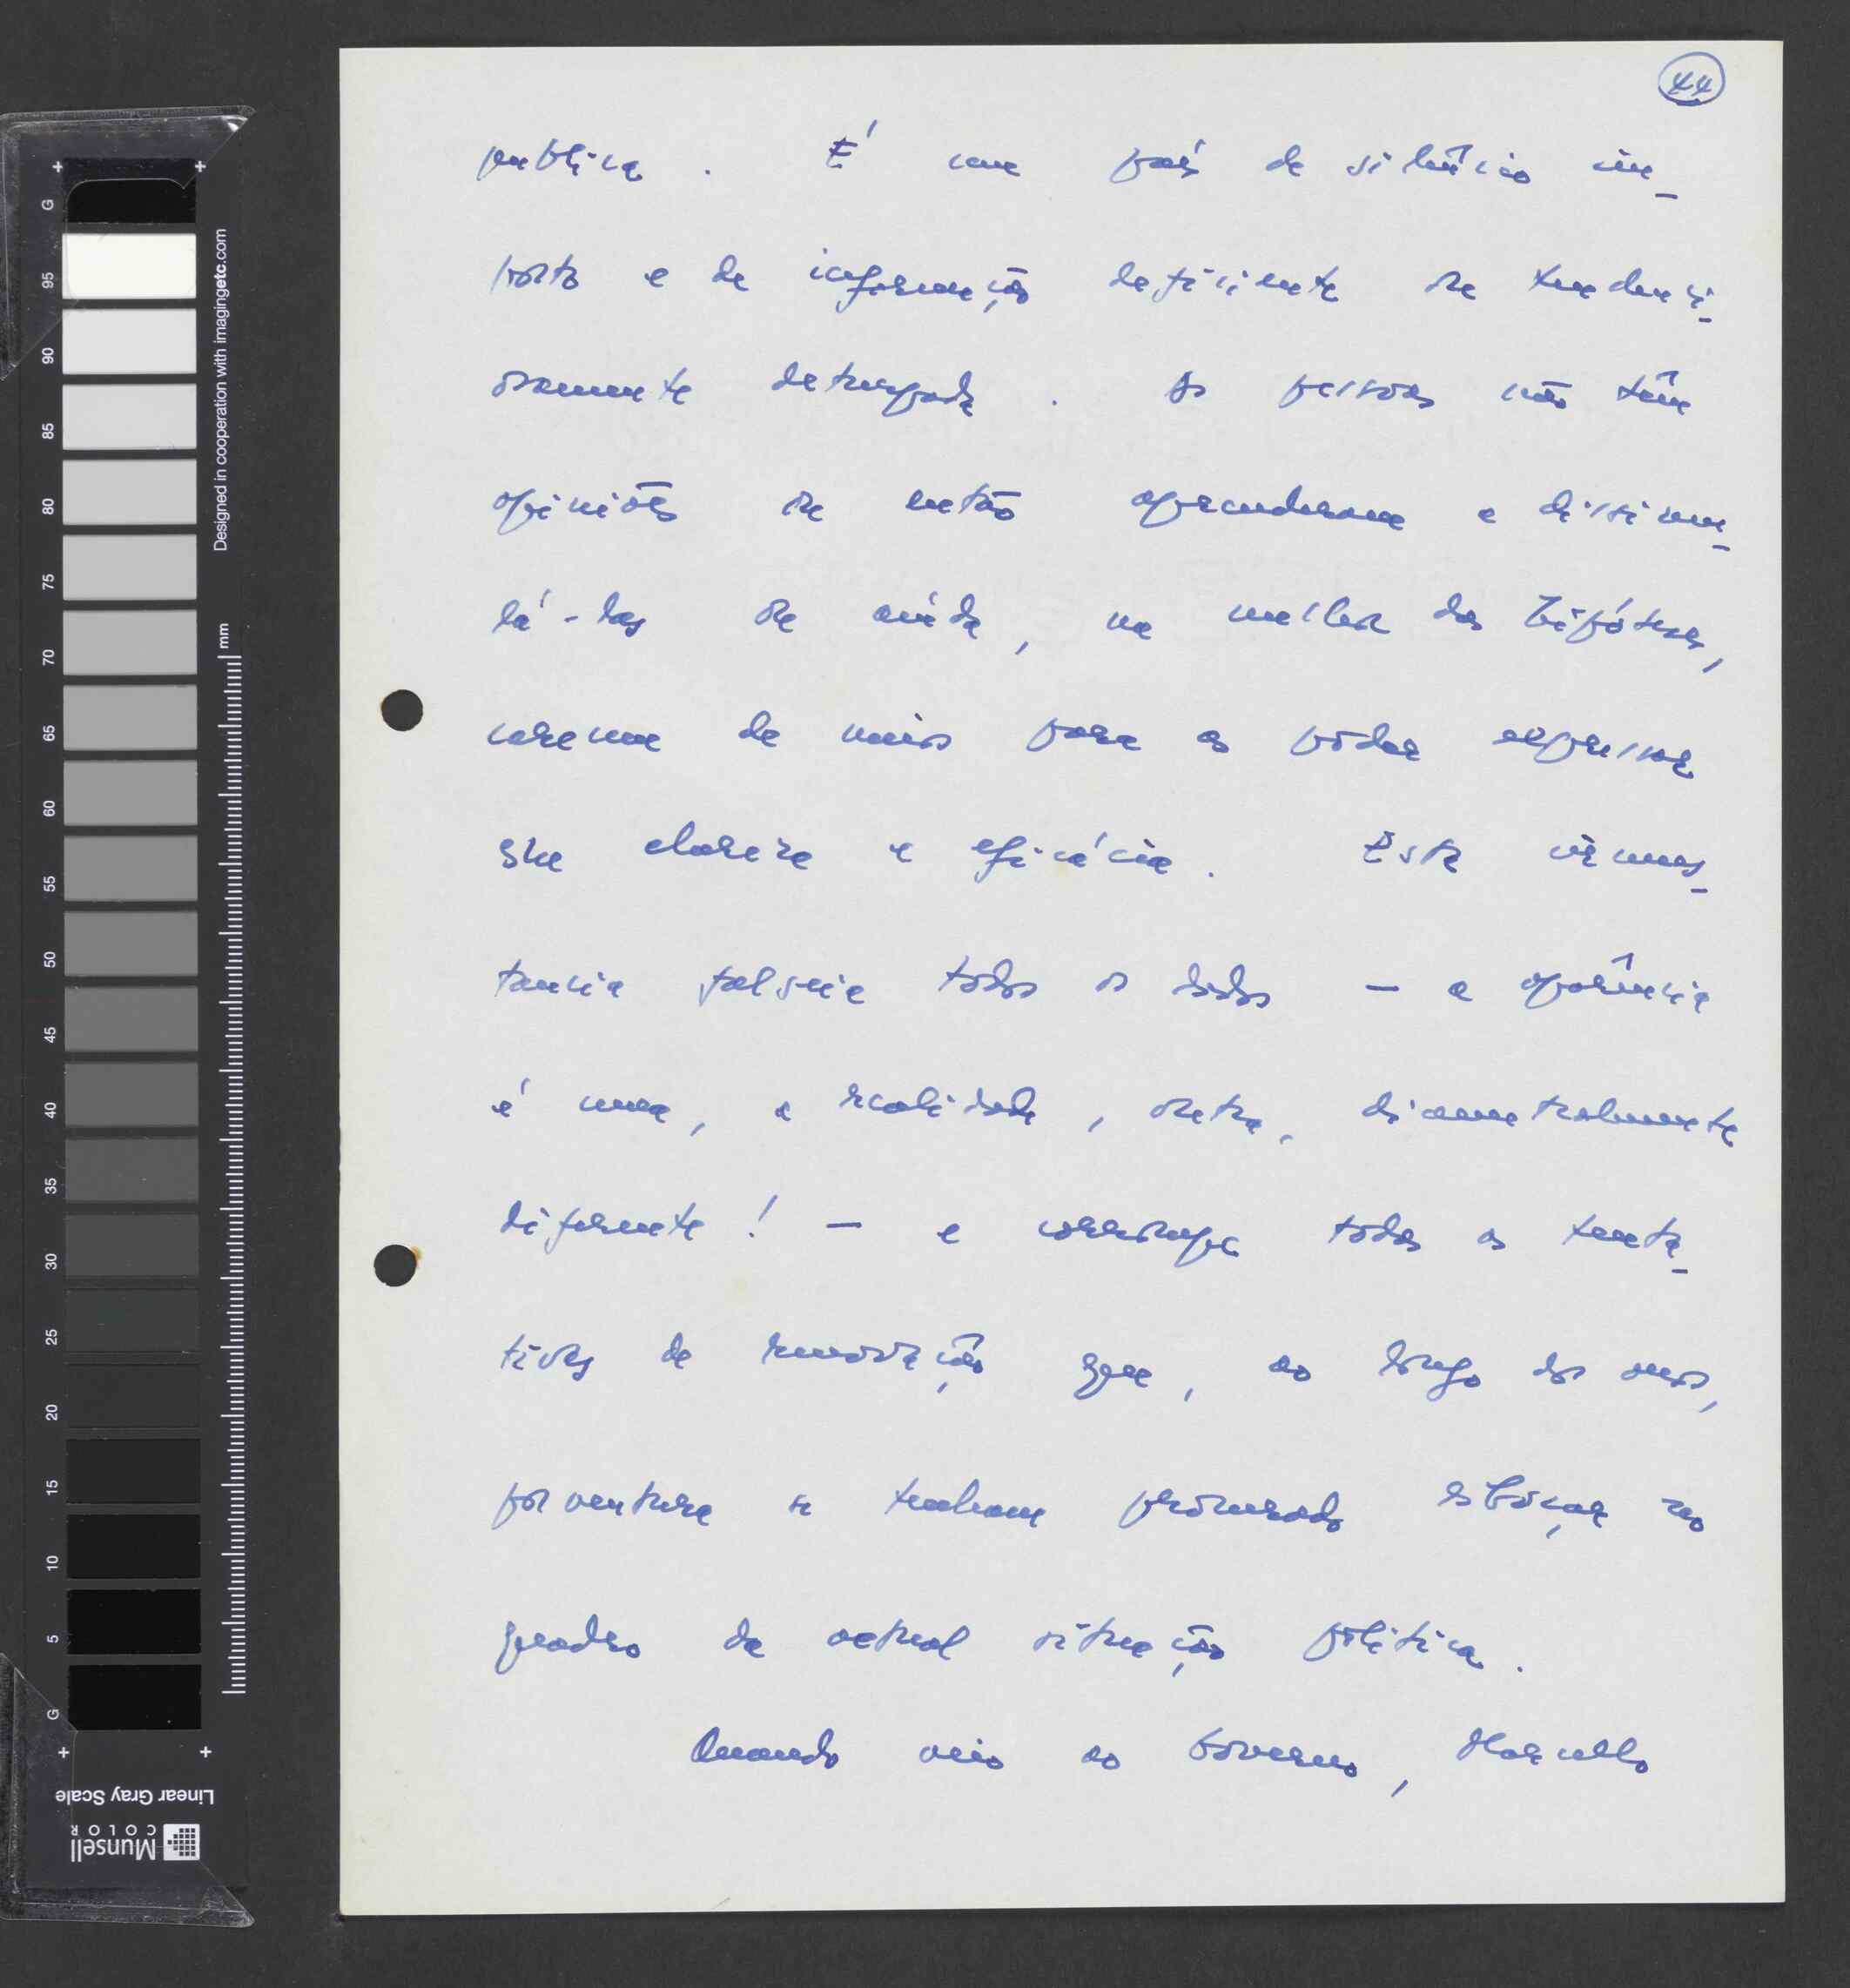 44
publica. É um país de silêncio im-
posto e de informação deficiente ou tendenci-
osamente deturpada. As pessoas não têm
opiniões ou então aprenderam a dissimu-
lá-las ou ainda, na melhor das hipóteses,
carecem de meios para as poder expressar
com clareza e eficácia. Esta circuns-
tancia falseia todos os dados — a aparência
é uma, a realidade, outra, diametralmente
diferente! — e corrompe todas as tenta-
tivas de renovação que, ao longo dos anos,
porventura se tenham procurado esboçar no
quadro da actual situação política.
Quando veio ao Governo, Marcello
G 95 90 85 80 75 70 65 60 55 50 45 40 35 30 25 20 15 10 5 G
Designed in cooperation with imagingetc.com
mm
Linear Gray Scale
Munsell
COLOR